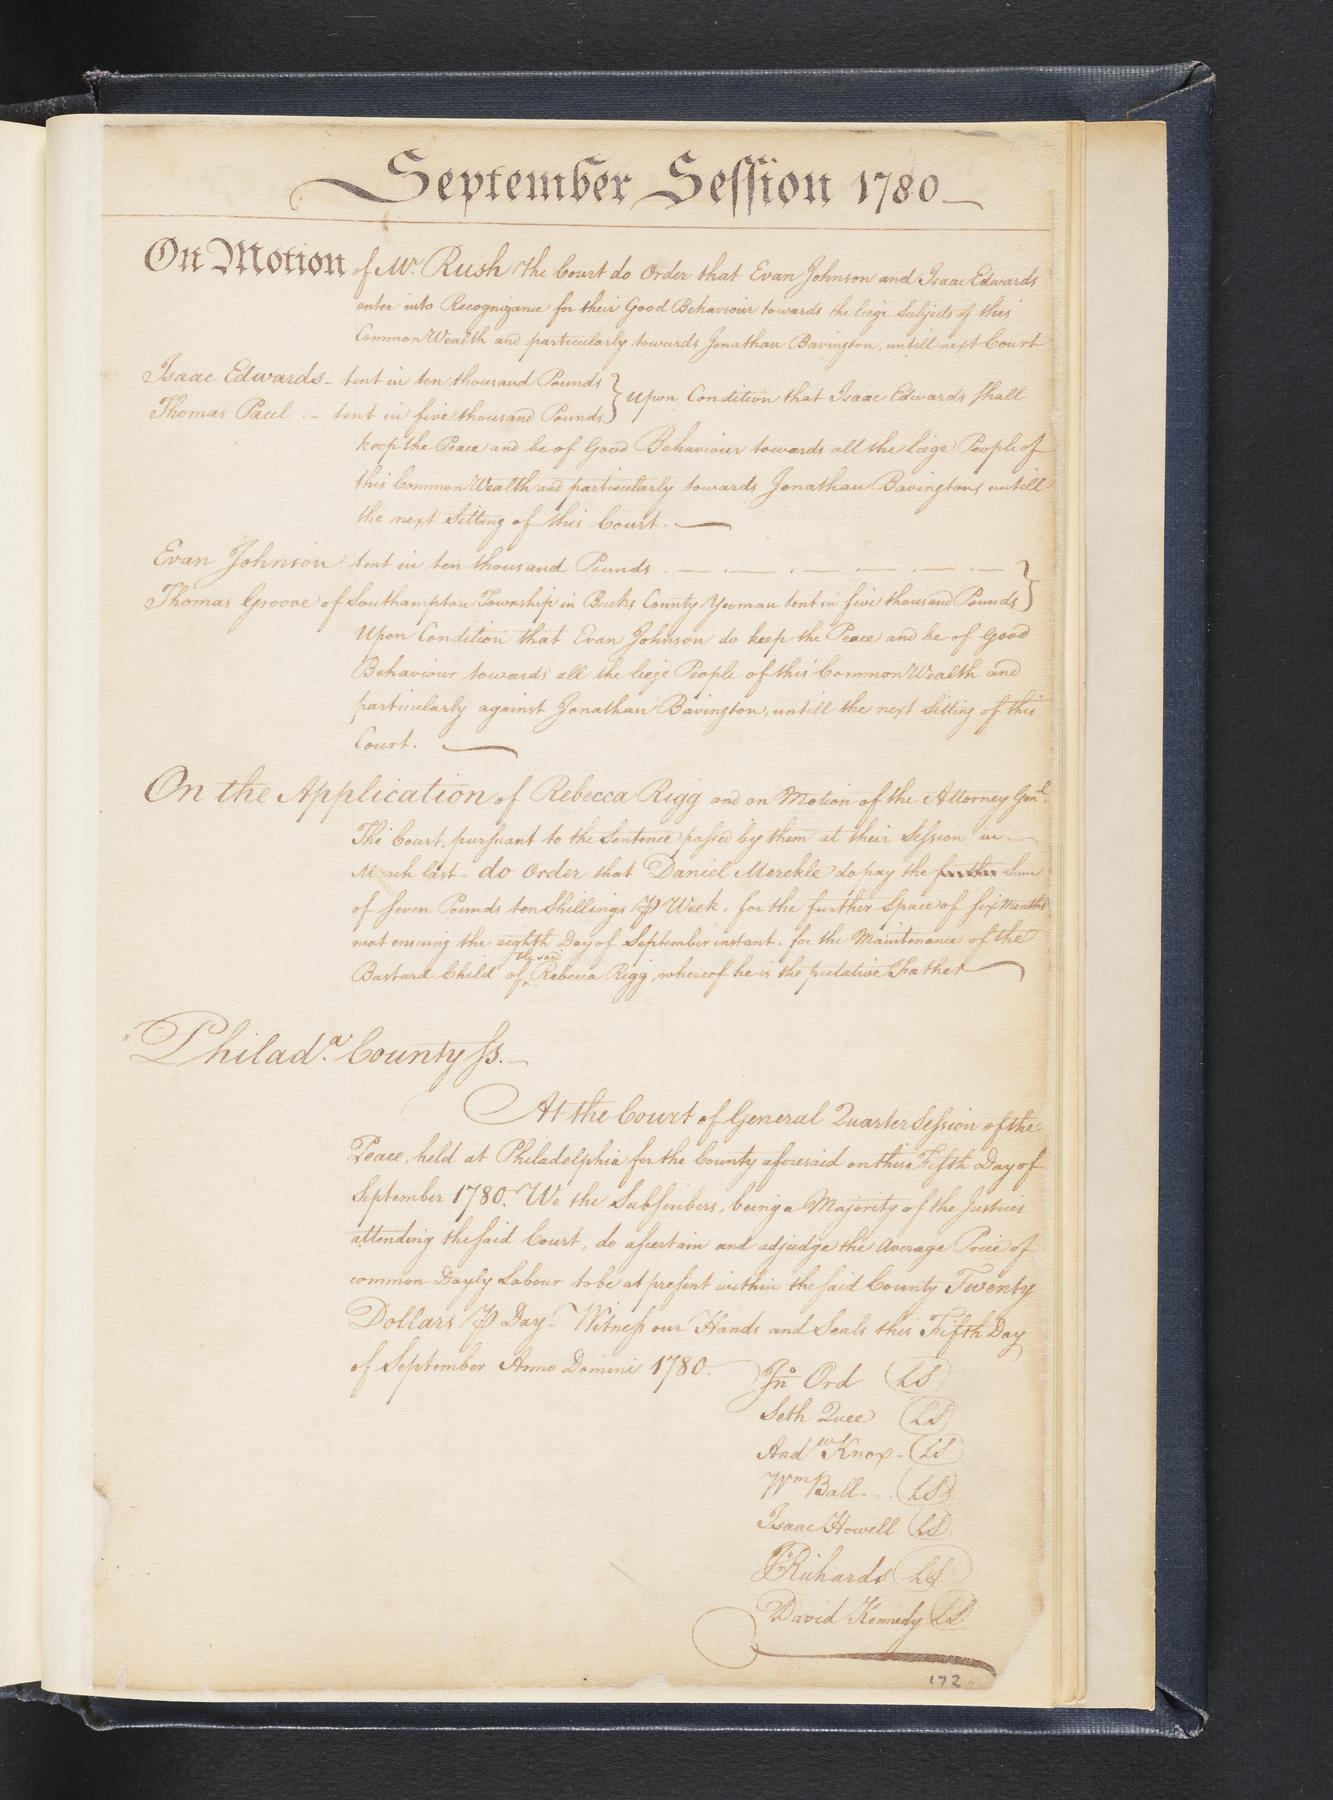 September Session 1780
On Motion of Mr. Rush the Court do Order that Evan Johnson and Isaac Edwards
enter into Recognizance for their Good Behaviour towards the liege Subjects of this
CommonWealth and particularly towards Jonathan Bavington, untill next Court
Isaac Edwards - tent in ten thousand Pounds } Upon Condition that Isaac Edwards shall
Thomas Paul . - tent in five thousand Pounds }
keep the Peace and be of Good Behaviour towards all the liege People of
this CommonWealth and particularly towards Jonathan Bavington, untill
the next Sitting of this Court. —
Evan Johnson tent in ten thousand Pounds . — . — . — — — — }
Thomas Groove of Southampton Township in Bucks County Yeoman tent in five thousand Pounds }
Upon Condition that Evan Johnson do keep the Peace and be of Good
Behaviour towards all the liege People of this CommonWealth and
particularly against Jonathan Bavington, untill the next Sitting of this
Court. —
On the Application of Rebecca Rigg and on Motion of the Attorney Genl.
The Court, pursuant to the Sentence passed by them at their Session in —
March last - do Order that Daniel Merekle do pay the further Sum
of seven Pounds ten Shillings ⅌ Week, for the further Space of six Months
next ensuing the eighth Day of September instant, for the Maintenance of the
Bastard Child of the said Rebecca Rigg, whereof he is the putative Father
Philada. County ss. —
At the Court of General Quarter Session of the
Peace, held at Philadelphia for the County aforesaid on this Fifth Day of
September 1780. We the Subscribers, being a Majority of the Justices
attending the said Court, do ascertain and adjudge the Average Price of
common Dayly Labour to be at present within the said County Twenty
Dollars ⅌ Day - Witness our Hands and Seals this Fifth Day
of September Anno Domini 1780.
Jno Ord LS
Seth Quee LS
Andw Knox - LS
Wm Ball ... LS
Isaac Howell LS
Richards LS
David Kennedy LS
172